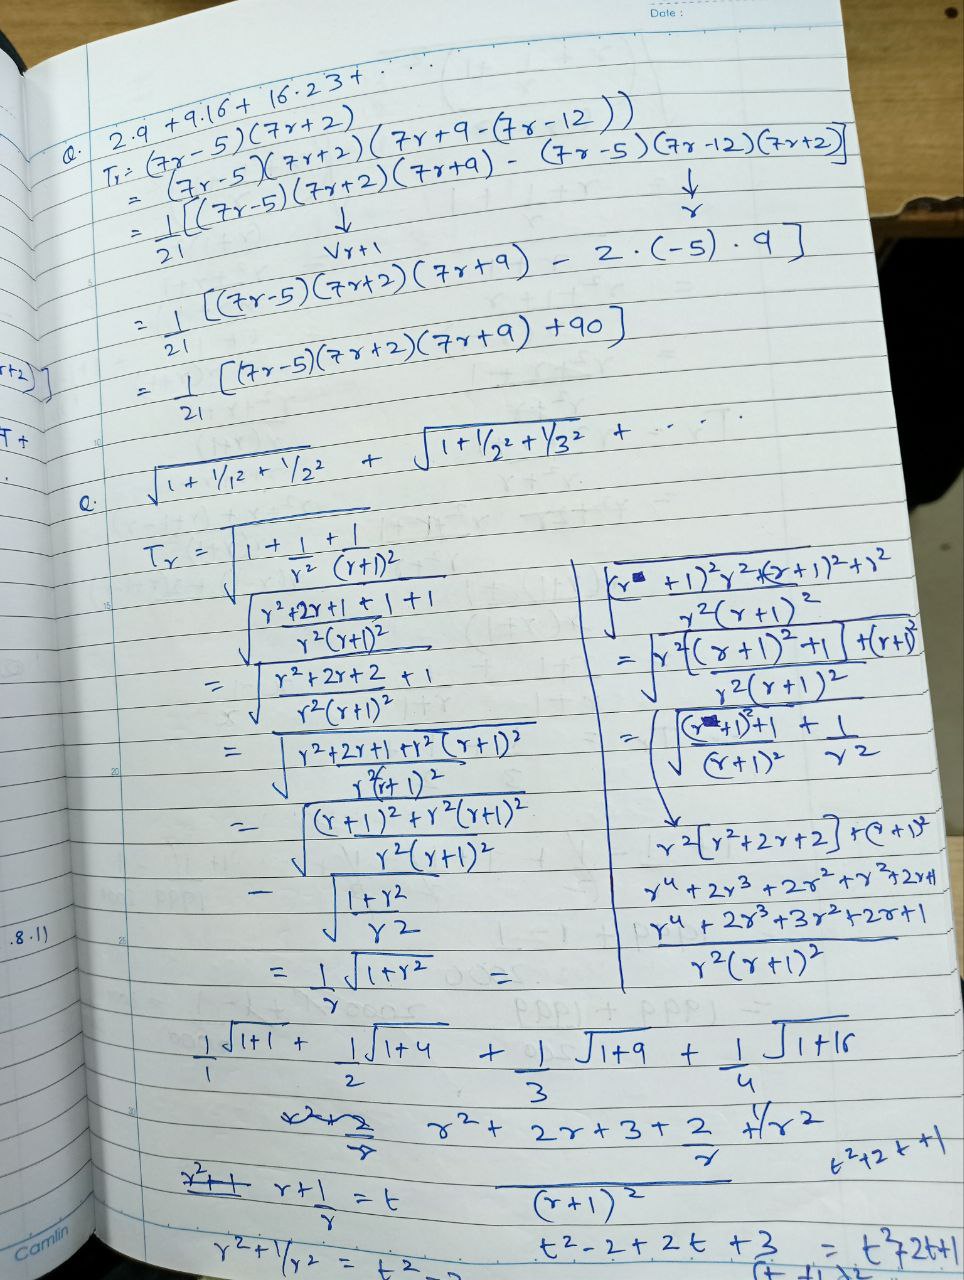 Date :
Q. 2.9 + 9.16 + 16.23 + . . .
Tr = (7r-5)(7r+2)
= (7r-5)(7r+2)(7r+9-(7r-12))
= 1/21 [(7r-5)(7r+2)(7r+9) - (7r-5)(7r-12)(7r+2)]
↓ ↓
Vr+1 r
= 1/21 [(7r-5)(7r+2)(7r+9) - 2.(-5).9]
= 1/21 [(7r-5)(7r+2)(7r+9) +90]
Q. √(1 + 1/1² + 1/2²) + √(1 + 1/2² + 1/3²) + . . . .
Tr = √(1 + 1/r² + 1/(r+1)²)
√((r²+2r+1+1+1)/(r²(r+1)²))
= √((r²+2r+2)/(r²(r+1)²) + 1)
= √((r²+2r+1+r²(r+1)²)/(r²(r+1)²))
= √(((r+1)²+r²(r+1)²)/(r²(r+1)²))
= √((1+r²)/r²)
= 1/r √(1+r²) =
√(((r+1)²r²+(r+1)²+r²)/(r²(r+1)²))
= √((r²[(r+1)²+1]+(r+1)²)/(r²(r+1)²))
= √(((r+1)²+1)/(r+1)² + 1/r²)
r²[r²+2r+2]+(r+1)²
r⁴+2r³+2r²+r²+2r+1
r⁴+2r³+3r²+2r+1
r²(r+1)²
1/1 √(1+1) + 1/2 √(1+4) + 1/3 √(1+9) + 1/4 √(1+16)
r² + 2r + 3 + 2/r + 1/r²
(r+1)²
t²+2t+1
r + 1/r = t
t²-2+2t+3 = t²+2t+1
r² + 1/r² = t²
r+2)]
.8.11
Camlin
5
10
15
20
25
30